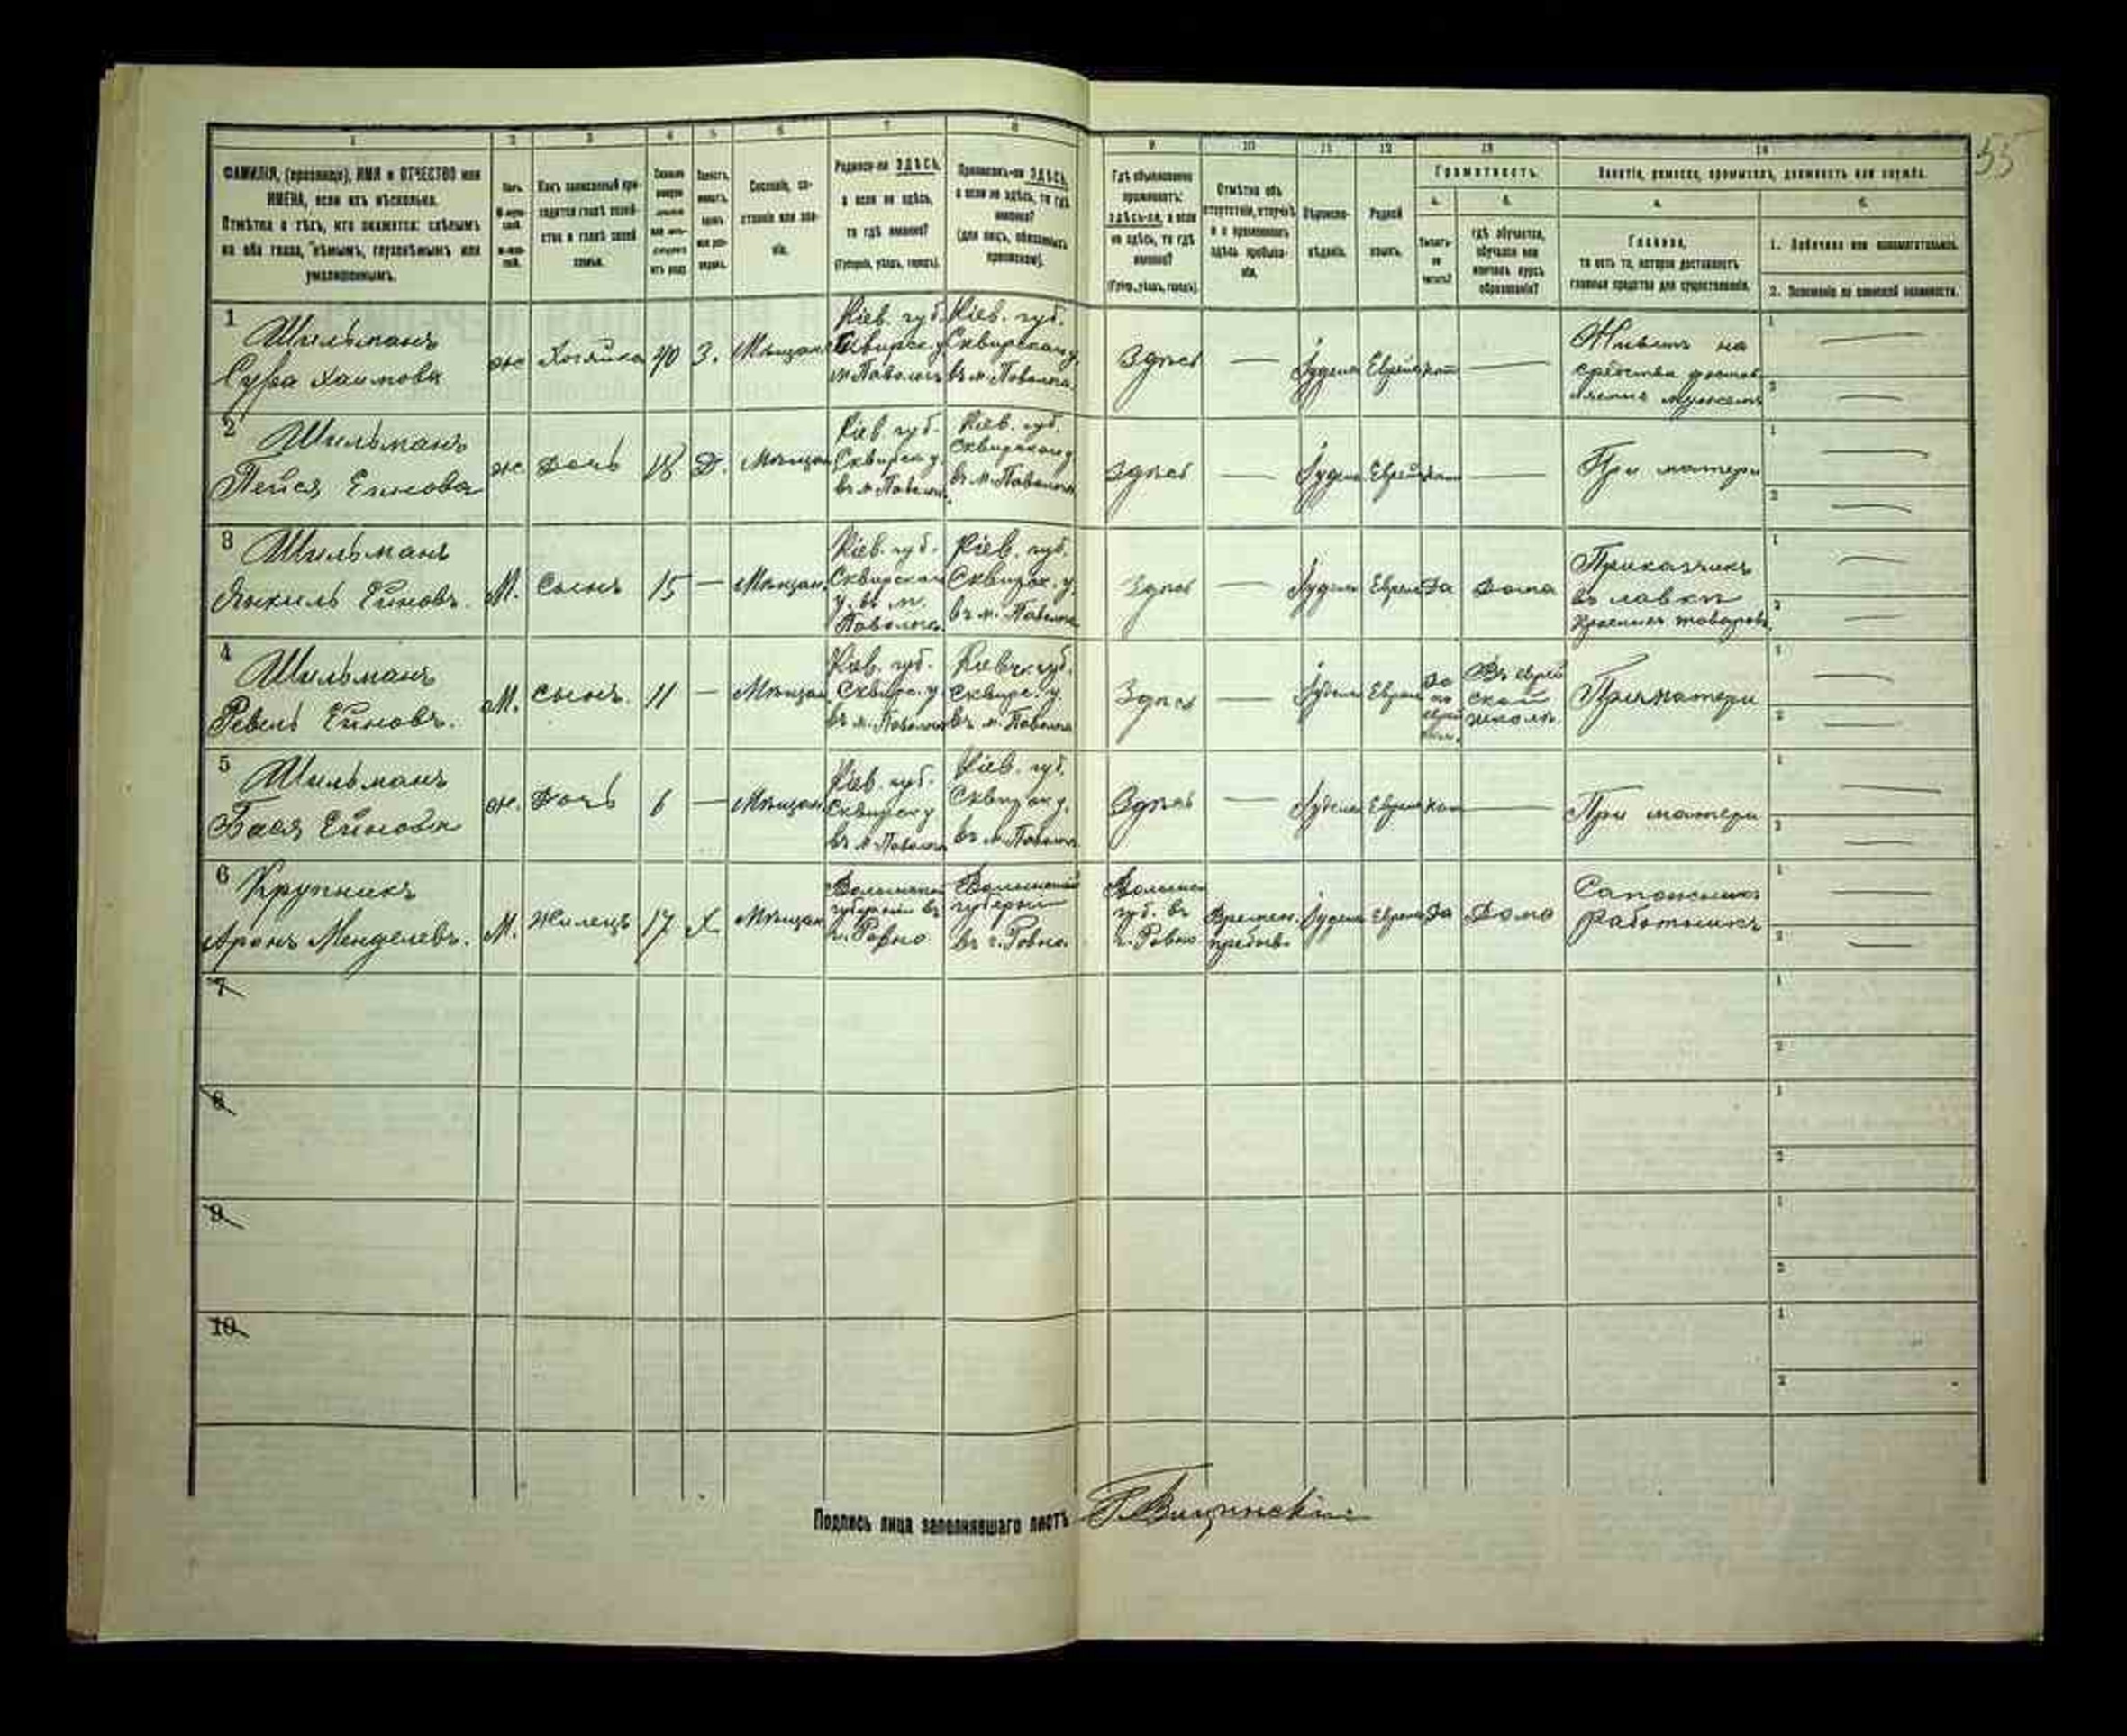 1 2 3 4 5 6 7 8 9 10 11 12 13 14
55
ФАМИЛІЯ, (прозвище), ИМЯ и ОТЧЕСТВО или
ИМЕНА, если ихъ нѣсколько.
Отмѣтка о тѣхъ, кто окажется: слѣпымъ
на оба глаза, нѣмымъ, глухонѣмымъ или
умалишеннымъ.
Какъ записанный при-
ходится главѣ хозяй-
ства и главѣ своей
семьи.
Сословіе, со-
стояніе или зва-
ніе.
Родился-ли ЗДѢСЬ,
а если не здѣсь,
то гдѣ именно?
(Губернія, уѣздъ, городъ).
Приписанъ-ли ЗДѢСЬ,
а если не здѣсь, то гдѣ
именно?
(для лицъ, обязанныхъ
припискою).
Гдѣ обыкновенно
проживаетъ:
здѣсь-ли, а если
не здѣсь, то гдѣ
именно?
(Губер., уѣздъ, городъ).
Отмѣтка объ
отсутствіи, отлучкѣ
и о временномъ
здѣсь пребыва-
ніи.
Вѣроиспо-
вѣданіе.
Родной
языкъ.
Грамотность.
а.
Умѣетъ-
ли
читать?
б.
гдѣ обучается,
обучался или
кончилъ курсъ
образованія?
Занятіе, ремесло, промыселъ, должность или служба.
а.
Главное,
то есть то, которое доставляетъ
главныя средства для существованія.
б.
1. Побочное или вспомогательное.
2. Положеніе по воинской повинности.
1 Шильманъ
Сура Хаимова
ж Хозяйка 40 З. Мѣщан.
Кіев. губ.
Сквирск. у
м Паволочь
Кіев. губ.
Сквирскаго у.
въ м. Паволочь
Здѣсь — Іудейск Еврейск нѣт —
Живетъ на
средства достав
ляемыя мужемъ
1 —
2 —
2 Шильманъ
Пейся Еинова
ж Дочь 18 Д. Мѣщан
Кіев. губ.
Сквирск у.
въ м. Паволоч.
Кіев. губ.
Сквирскаго у
въ м. Паволочи
Здѣсь — Іудейск Еврейск нѣт —
При матери
1 —
2 —
3 Шильманъ
Янкель Ейновъ.
М. Сынъ 15 — Мѣщан.
Кіев. губ.
Сквирскаго
у. въ м.
Паволочь
Кіев. губ.
Сквирск. у.
въ м. Паволочь
Здѣсь — Іудейск Еврейск Да Дома
Приказчикъ
въ лавкѣ
красныхъ товаровъ.
1 —
2 —
4 Шильманъ
Ревель Ейновъ.
М. Сынъ. 11 — Мѣщан
Кіев. губ.
Сквирс. у.
въ м. Паволочь
Кіевск. губ.
Сквирс. у.
въ м. Паволочь
Здѣсь — Іудейск Еврейск
Да
по
еврей
ски.
Въ еврей
ской
школѣ.
При матери
1 —
2 —
5 Шильманъ
Бася Ейнова
ж. Дочь 6 — Мѣщан
Кіев. губ.
Сквирск у
въ м Паволочь
Кіев. губ.
Сквирск у.
въ м Паволочь
Здѣсь — Іудейск Еврейск нѣт —
При матери
1 —
2 —
6 Крупникъ
Аронъ Менделевъ.
М. Жилецъ 17 Х Мѣщан
Волынской
губерніи въ
г. Ровно
Волынской
губерніи
въ г. Ровно.
Волынск
губ. въ
г. Ровно
Времен.
пребыв.
Іудейск Еврейск Да Дома
Сапожникъ
Работникъ
1 —
2 —
7 1
2
8 1
2
9 1
2
10 1
2
Подпись лица заполнявшаго листъ